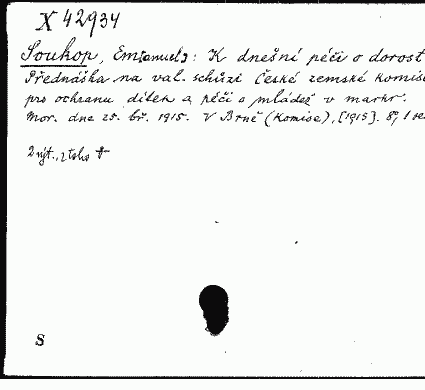 X 42934
Soukop, Emanuel: K dnešní péči o dorost
Přednáška na val. schůzi České zemské komise
pro ochranu dítek a péči o mládež v markr.
Mor. dne 25. bř. 1915. V Brně (Komise), [1915]. 8°, 1
2 výt.,
S